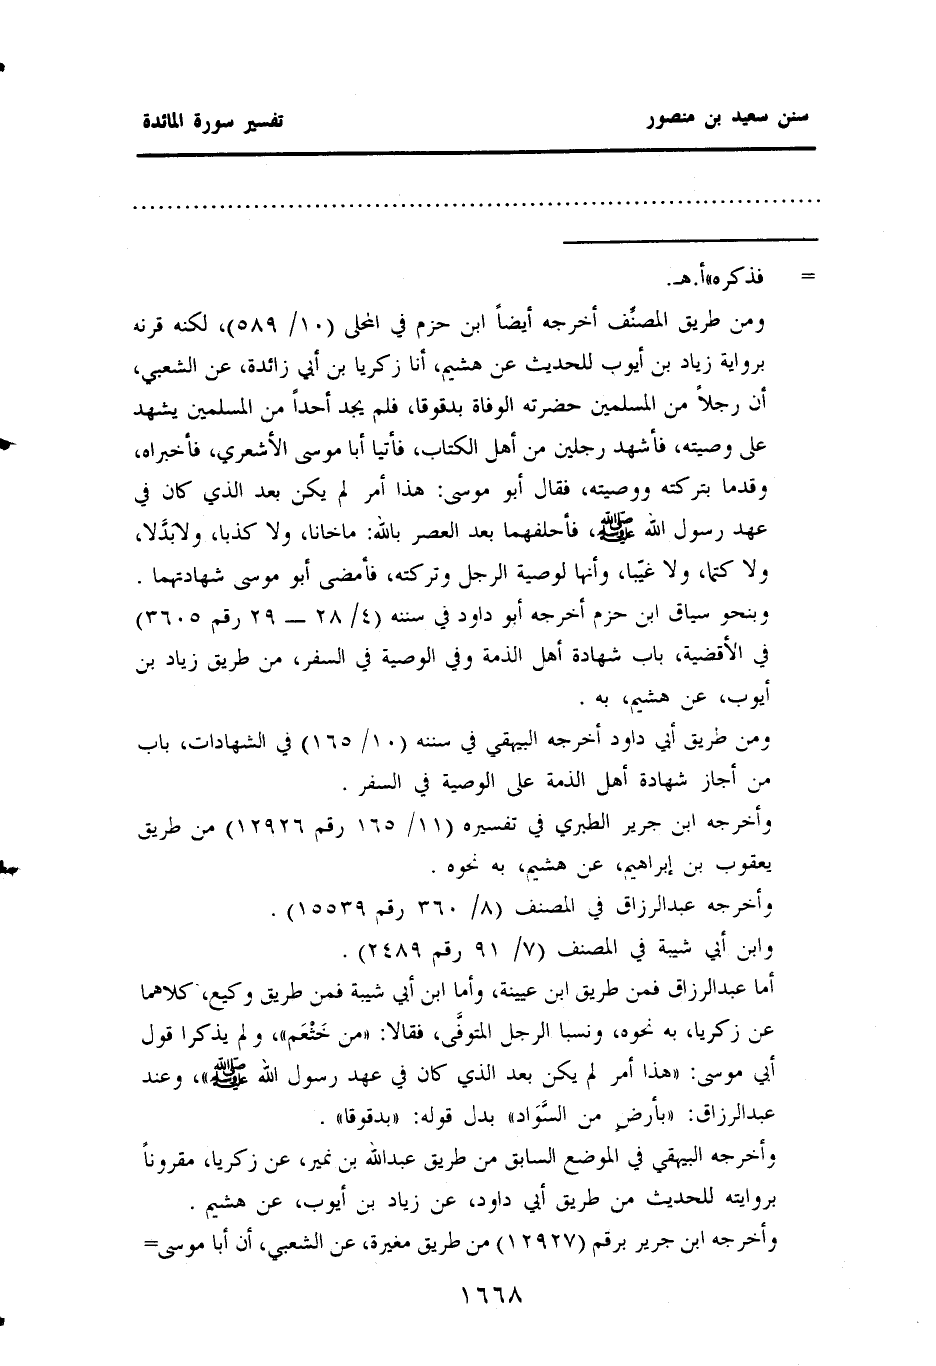 سنن سعيد بن منصور	تفسير سورة المائدة
= فذكره»أ.هـ.
ومن طريق المصنِّف أخرجه أيضاً ابن حزم في المحلى (١٠/ ٥٨٩)، لكنه قرنه
برواية زياد بن أيوب للحديث عن هشيم، أنا زكريا بن أبي زائدة، عن الشعبي،
أن رجلاً من المسلمين حضرته الوفاة بدقوقا، فلم يجد أحداً من المسلمين يشهد
على وصيته، فأشهد رجلين من أهل الكتاب، فأتيا أبا موسى الأشعري، فأخبراه،
وقدما بتركته ووصيته، فقال أبو موسى: هذا أمر لم يكن بعد الذي كان في
عهد رسول الله ﷺ، فأحلفهما بعد العصر بالله: ماخانا، ولا كذبا، ولابَدَّلا،
ولا كتما، ولا غيّبا، وأنها لوصية الرجل وتركته، فأمضى أبو موسى شهادتهما .
وبنحو سياق ابن حزم أخرجه أبو داود في سننه (٤/ ٢٨ ــ ٢٩ رقم ٣٦٠٥)
في الأقضية، باب شهادة أهل الذمة وفي الوصية في السفر، من طريق زياد بن
أيوب، عن هشيم، به .
ومن طريق أبي داود أخرجه البيهقي في سننه (١٠/ ١٦٥) في الشهادات، باب
من أجاز شهادة أهل الذمة على الوصية في السفر .
وأخرجه ابن جرير الطبري في تفسيره (١١/ ١٦٥ رقم ١٢٩٢٦) من طريق
يعقوب بن إبراهيم، عن هشيم، به نحوه .
وأخرجه عبدالرزاق في المصنف (٨/ ٣٦٠ رقم ١٥٥٣٩) .
وابن أبي شيبة في المصنف (٧/ ٩١ رقم ٢٤٨٩) .
أما عبدالرزاق فمن طريق ابن عيينة، وأما ابن أبي شيبة فمن طريق وكيع، كلاهما
عن زكريا، به نحوه، ونسبا الرجل المتوفَّى، فقالا: «من خَثْعَم»، ولم يذكرا قول
أبي موسى: «هذا أمر لم يكن بعد الذي كان في عهد رسول الله ﷺ»، وعند
عبدالرزاق: «بأرضٍ من السَّوَاد» بدل قوله: «بدقوقا» .
وأخرجه البيهقي في الموضع السابق من طريق عبدالله بن نمير، عن زكريا، مقروناً
بروايته للحديث من طريق أبي داود، عن زياد بن أيوب، عن هشيم .
وأخرجه ابن جرير برقم (١٢٩٢٧) من طريق مغيرة، عن الشعبي، أن أبا موسى=
١٦٦٨